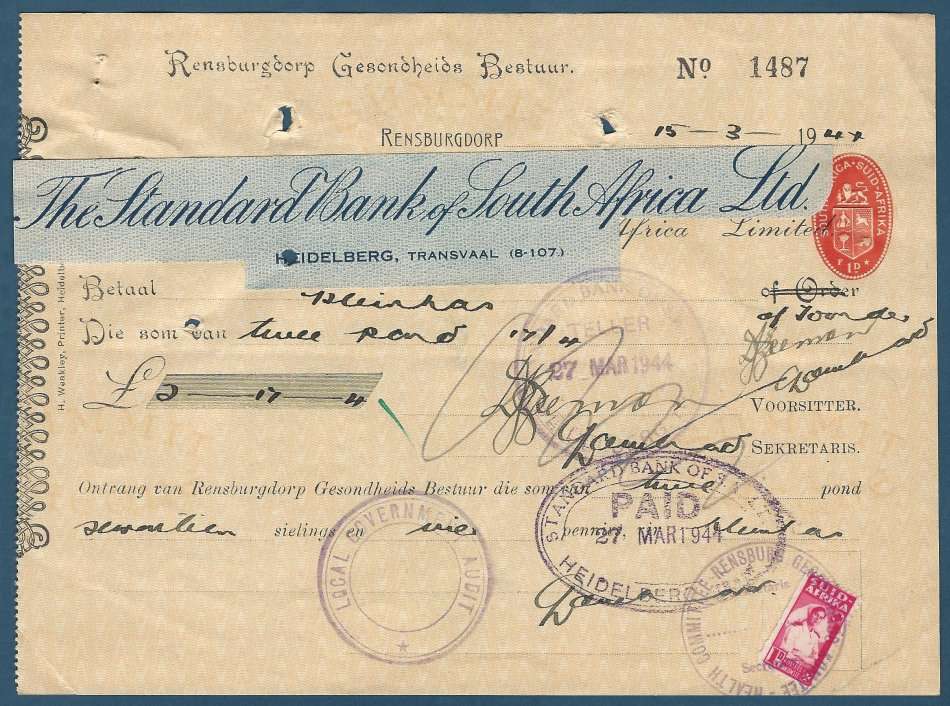 Rensburgdorp Gesondheids Bestuur.
Nº 1487
RENSBURGDORP 15-3-1944
The Standard Bank of South Africa Ltd.
Africa Limited
HEIDELBERG, TRANSVAAL (8-107.)
SUID-AFRIKA
1D
Betaal Kleinkas of Order
of Toonder
Die som van twee pond 17/4
TELLER
27 MAR 1944
£2-17-4
VOORSITTER.
SEKRETARIS.
Ontvang van Rensburgdorp Gesondheids Bestuur die som van twee pond
sewentien sielings en vier pennies, vir Kleinkas
STANDARD BANK OF
PAID
27 MAR 1944
HEIDELBERG
LOCAL GOVERNMENT AUDIT
RENSBURG
HEALTH COMMITTEE
SUID-AFRIKA
H. Weakley, Printer, Heidelb